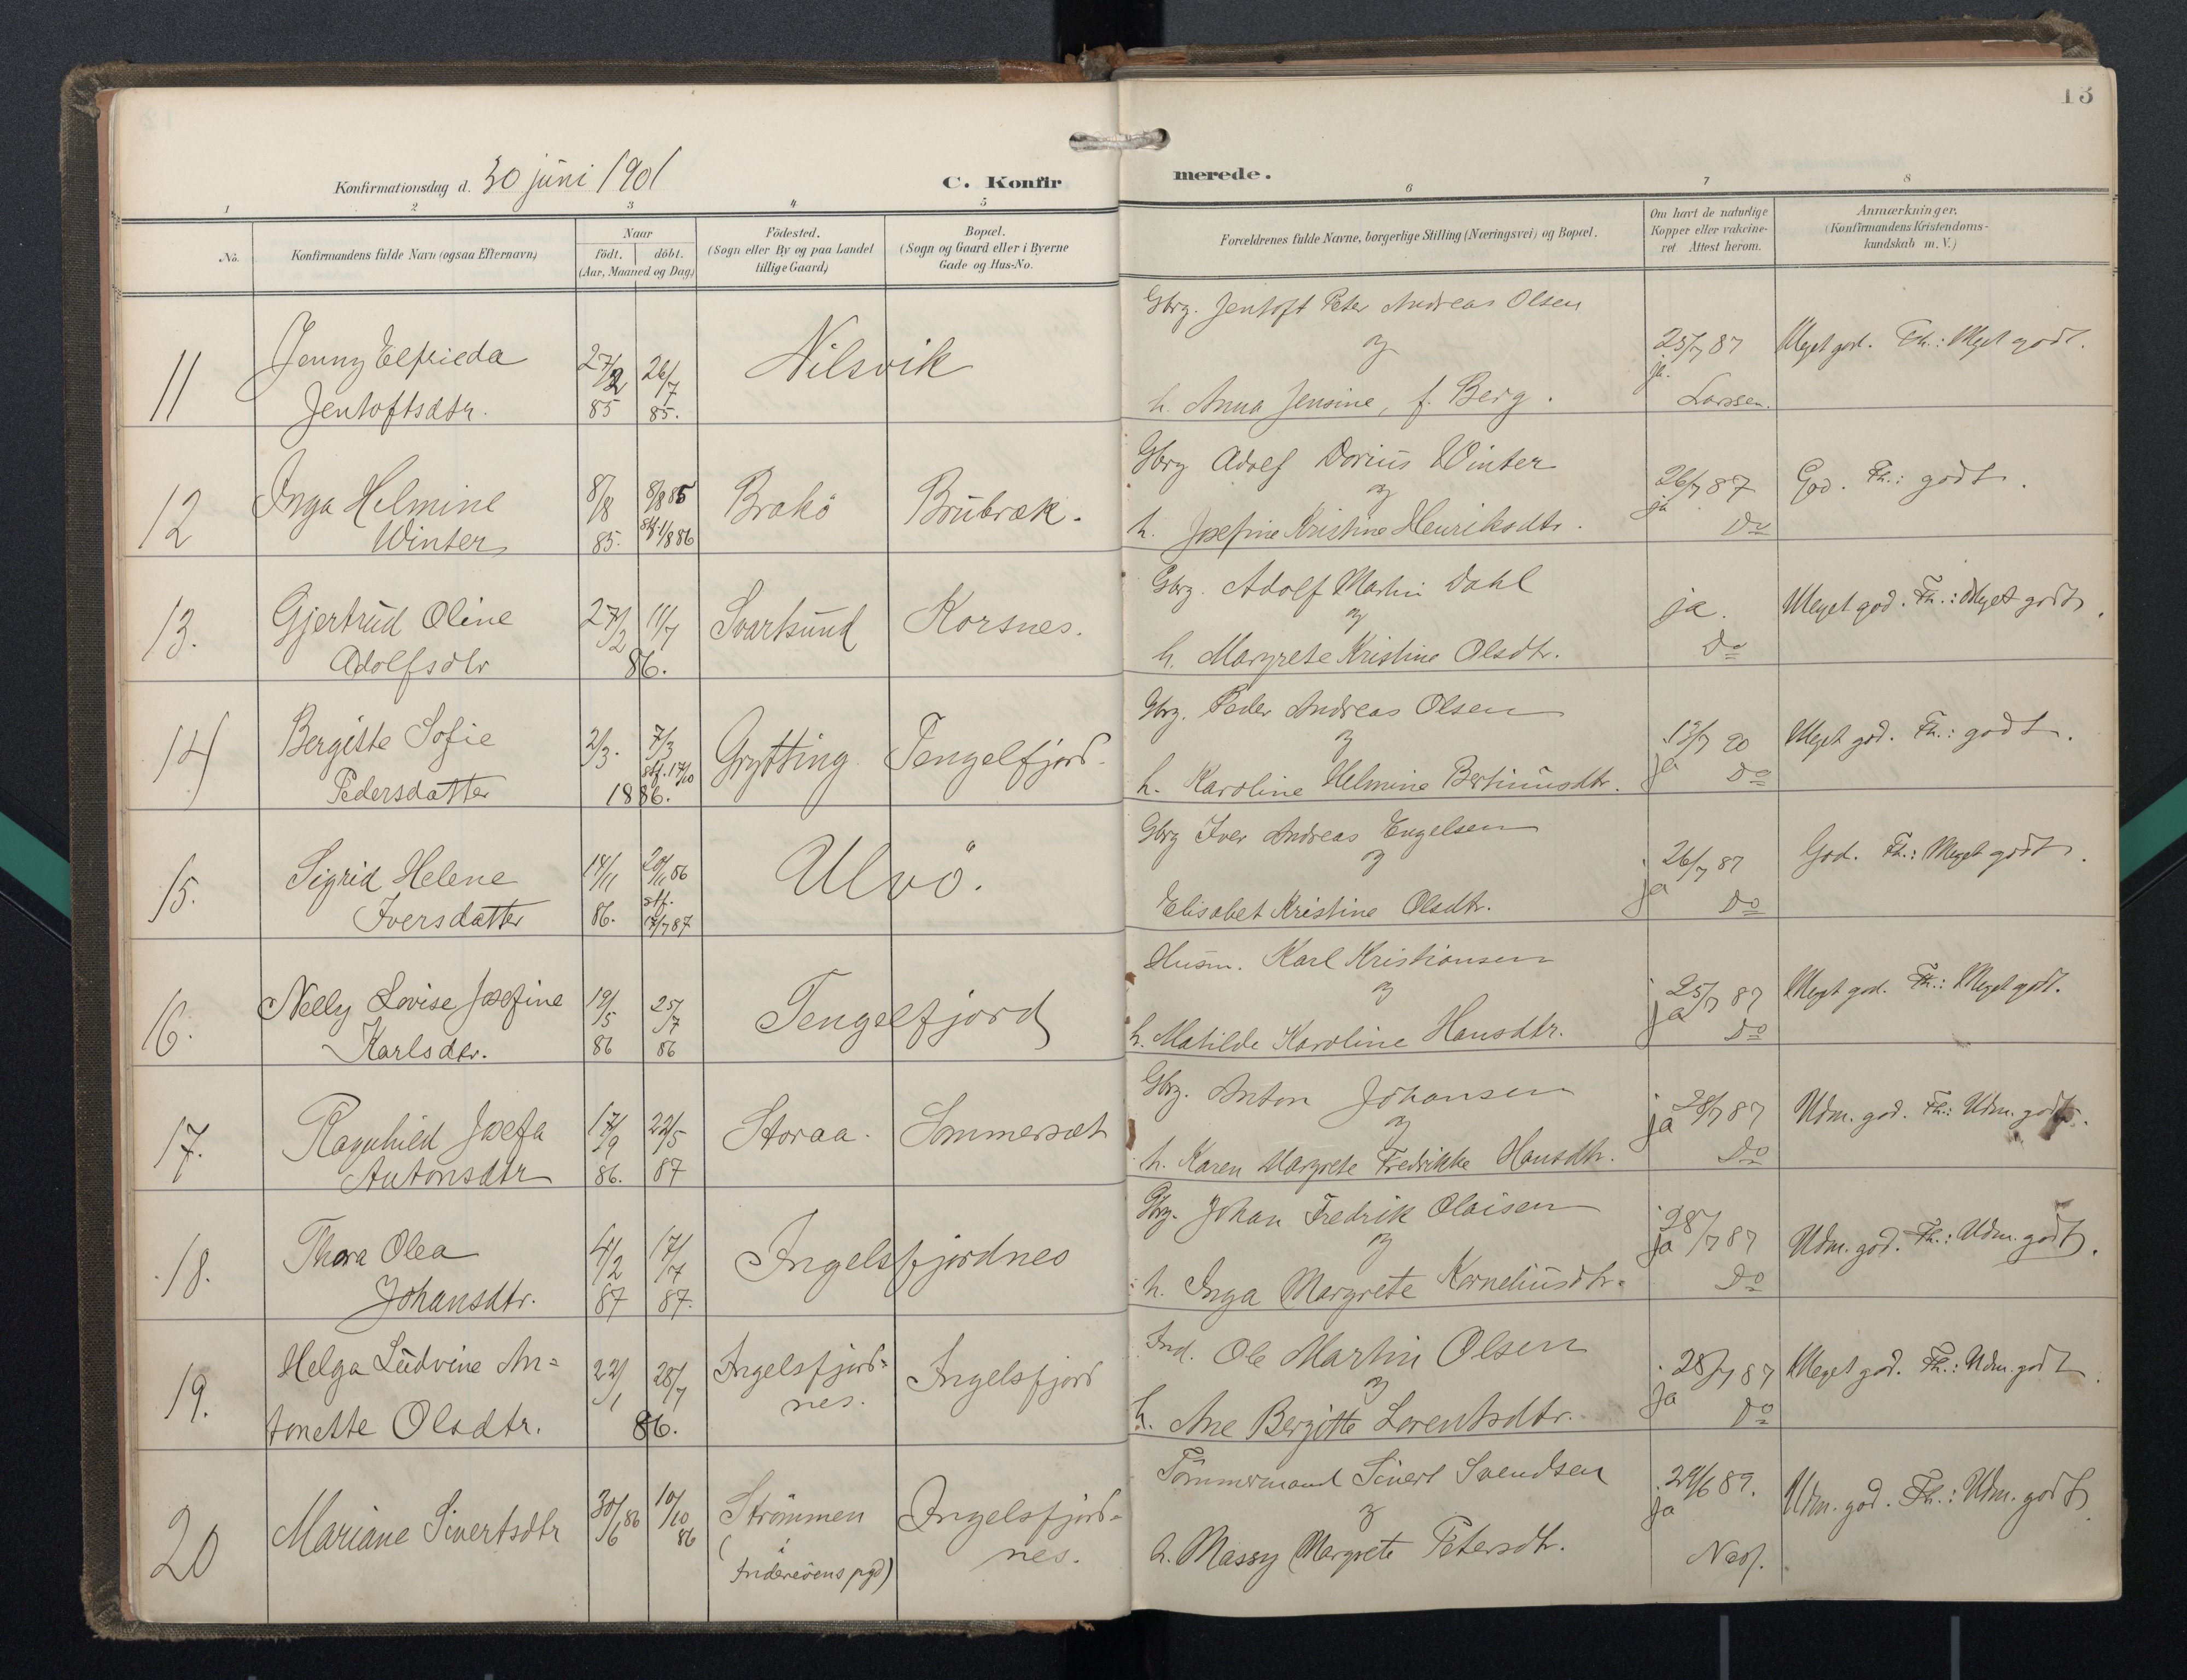 13
Konfirmationsdag d. 30 juni 1901
C. Konfirmerede.
1 2 3 4 5 6 7 8
No.
Konfirmandens fulde Navn (ogsaa Efternavn)
Naar
født. døbt.
(Aar, Maaned og Dag)
Födested.
(Sogn eller By og paa Landet
tillige Gaard)
Bopæl.
(Sogn og Gaard eller i Byerne
Gade og Hus-No.
Forældrenes fulde Navne, borgerlige Stilling (Næringsvei) og Bopæl.
Om havt de naturlige
Kopper eller vakcine-
ret. Attest herom.
Anmærkninger.
(Konfirmandens Kristendoms-
kundskab m. V.)
11
Jenny Elfrieda
Jentoftsdtr.
27/2
85
26/7
85.
Nilsvik
Gbrg. Jentoft Peter Andreas Olsen
og
h. Anna Jensine, f. Berg.
25/7 87
ja.
Larssen.
Meget god. Fh.: Meget godt.
12
Inga Helmine
Winter
8/8
85.
8/8 85
stf. 1/8 86
Brakö
Brubræk.
Gbrg Adolf Dorius Winter
og
h. Josefine Kristine Henriksdtr.
26/7 87
ja
Do
God. Fh.: godt.
13.
Gjertrud Oline
Adolfsdtr
27/2 11/7
86.
Svartsund
Korsnes.
Gbrg. Adolf Martin Dahl
og
h. Margrete Kristine Olsdtr.
ja.
Do
Meget god. Fh.: Meget godt.
14
Bergitte Sofie
Pedersdatter
2/3. 7/3
stf. 17/10
1886.
Grytting
Tengelfjord.
Gbrg. Peder Andreas Olsen
og
h. Karoline Helmine Bertinusdtr.
13/7 90
ja Do
Meget god. Fh.: godt.
15.
Sigrid Helene
Iversdatter
14/11
86.
20/11 86
stf.
17/7 87
Ulvö.
Gbrg Iver Andreas Engelsen
og
Elisabet Kristine Olsdtr.
26/7 87
ja
Do
God. Fh.: Meget godt.
16.
Nelly Lovise Josefine
Karlsdtr.
19/5
86
25/7
86
Tengelfjord
Husm. Karl Kristiansen
og
h. Matilde Karoline Hansdtr.
25/7 87
ja
Do
Meget god. Fh.: Meget godt.
17.
Ragnhild Josefa
Antonsdtr
17/9
86.
22/5
87
Storaa.
Sommersæt
Gbrg. Anton Johansen
og
h. Karen Margrete Fredrikke Hansdtr.
ja 28/7 87
Do
Udm. god. Fh.: Udm. godt.
18.
Thora Olea
Johansdtr.
4/2
87
17/7
87.
Ingelsfjordnes
Gbrg. Johan Fredrik Olaisen
og
h. Inga Margrete Korneliusdtr.
28/7 87
ja
Do
Udm. god. Fh.: Udm. godt.
19.
Helga Ludvine An=
tonette Olsdtr.
22/1 28/7
86.
Ingelsfjord=
nes.
Ingelsfjord
Ind. Ole Martin Olsen
og
h. Ane Bergitte Lorentsdtr.
28/7 87
ja
Do
Meget god. Fh.: Udm. godt.
20
Mariane Sivertsdtr
30/6 86
10/10
86
Strömmen
(i
Inderøens pgd)
Ingelsfjord=
nes.
Tömmermand Sivert Svendsen
og
h. Massy Margrete Petersdtr.
29/6 89.
ja
Udm. god. Fh.: Udm. godt.